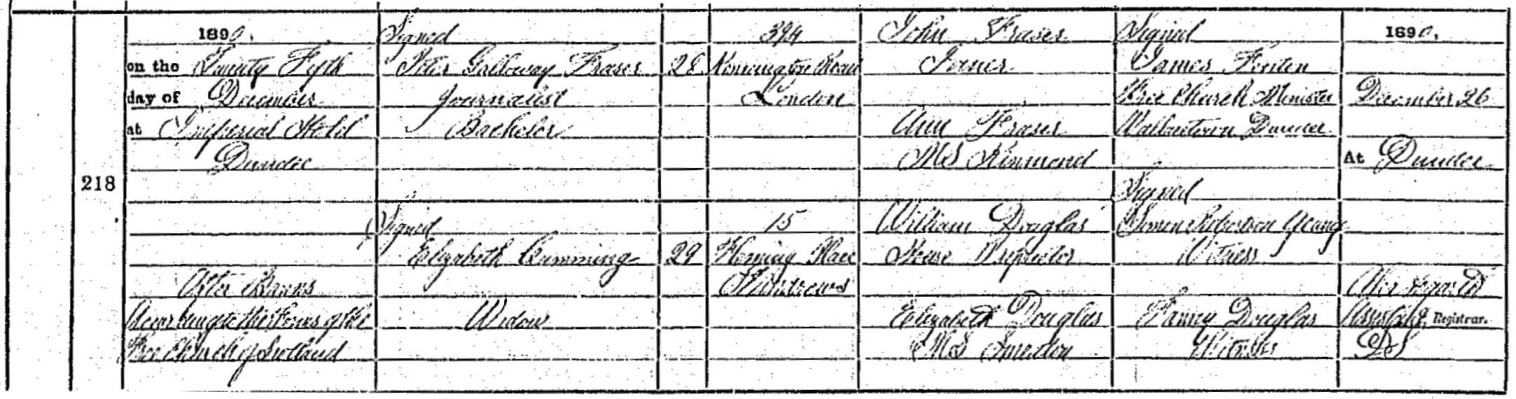 218
1890.
on the Twenty Fifth
day of December
at Imperial Hotel
Dundee
After Banns
According to the Forms of the
Free Church of Scotland
Signed
Peter Galloway Fraser
Journalist
Bachelor
Signed
Elizabeth Cumming
Widow
28
29
394
Kennington Road
London
15
Place
St Andrews
John Fraser
Joiner
Ann Fraser
M.S. Kinmond
William Douglas
House Proprietor
Elizabeth Douglas
M.S. Smeaton
Signed
James Fenton
Free Church Minister
Dundee
Signed
Young
Witness
Fanny Douglas
Witness
1890,
December 26
At Dundee
Alex
Registrar.